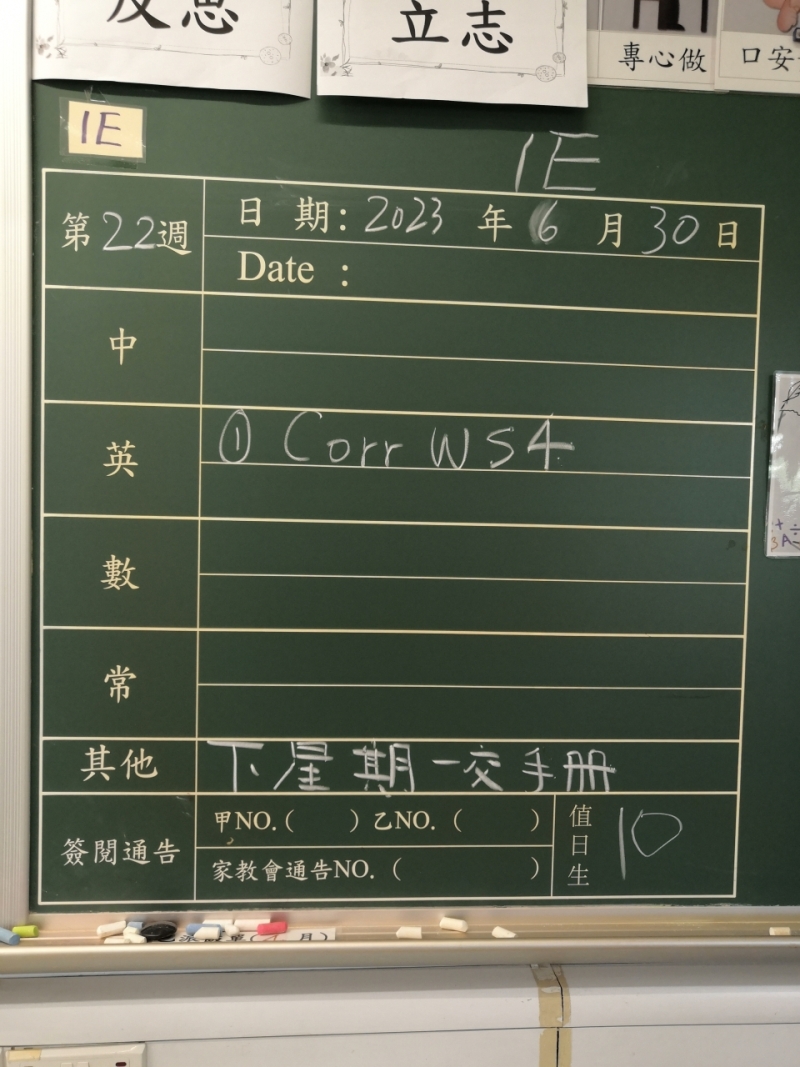 反思
立志
專心做
口安
1E
1E
第22週
日 期：2023 年 6 月 30 日
Date ：
中
英
① Corr WS4
數
常
其他
下星期一交手册
簽閱通告
甲NO.（ ）乙NO.（ ）
家教會通告NO.（ ）
值日生
10
月）